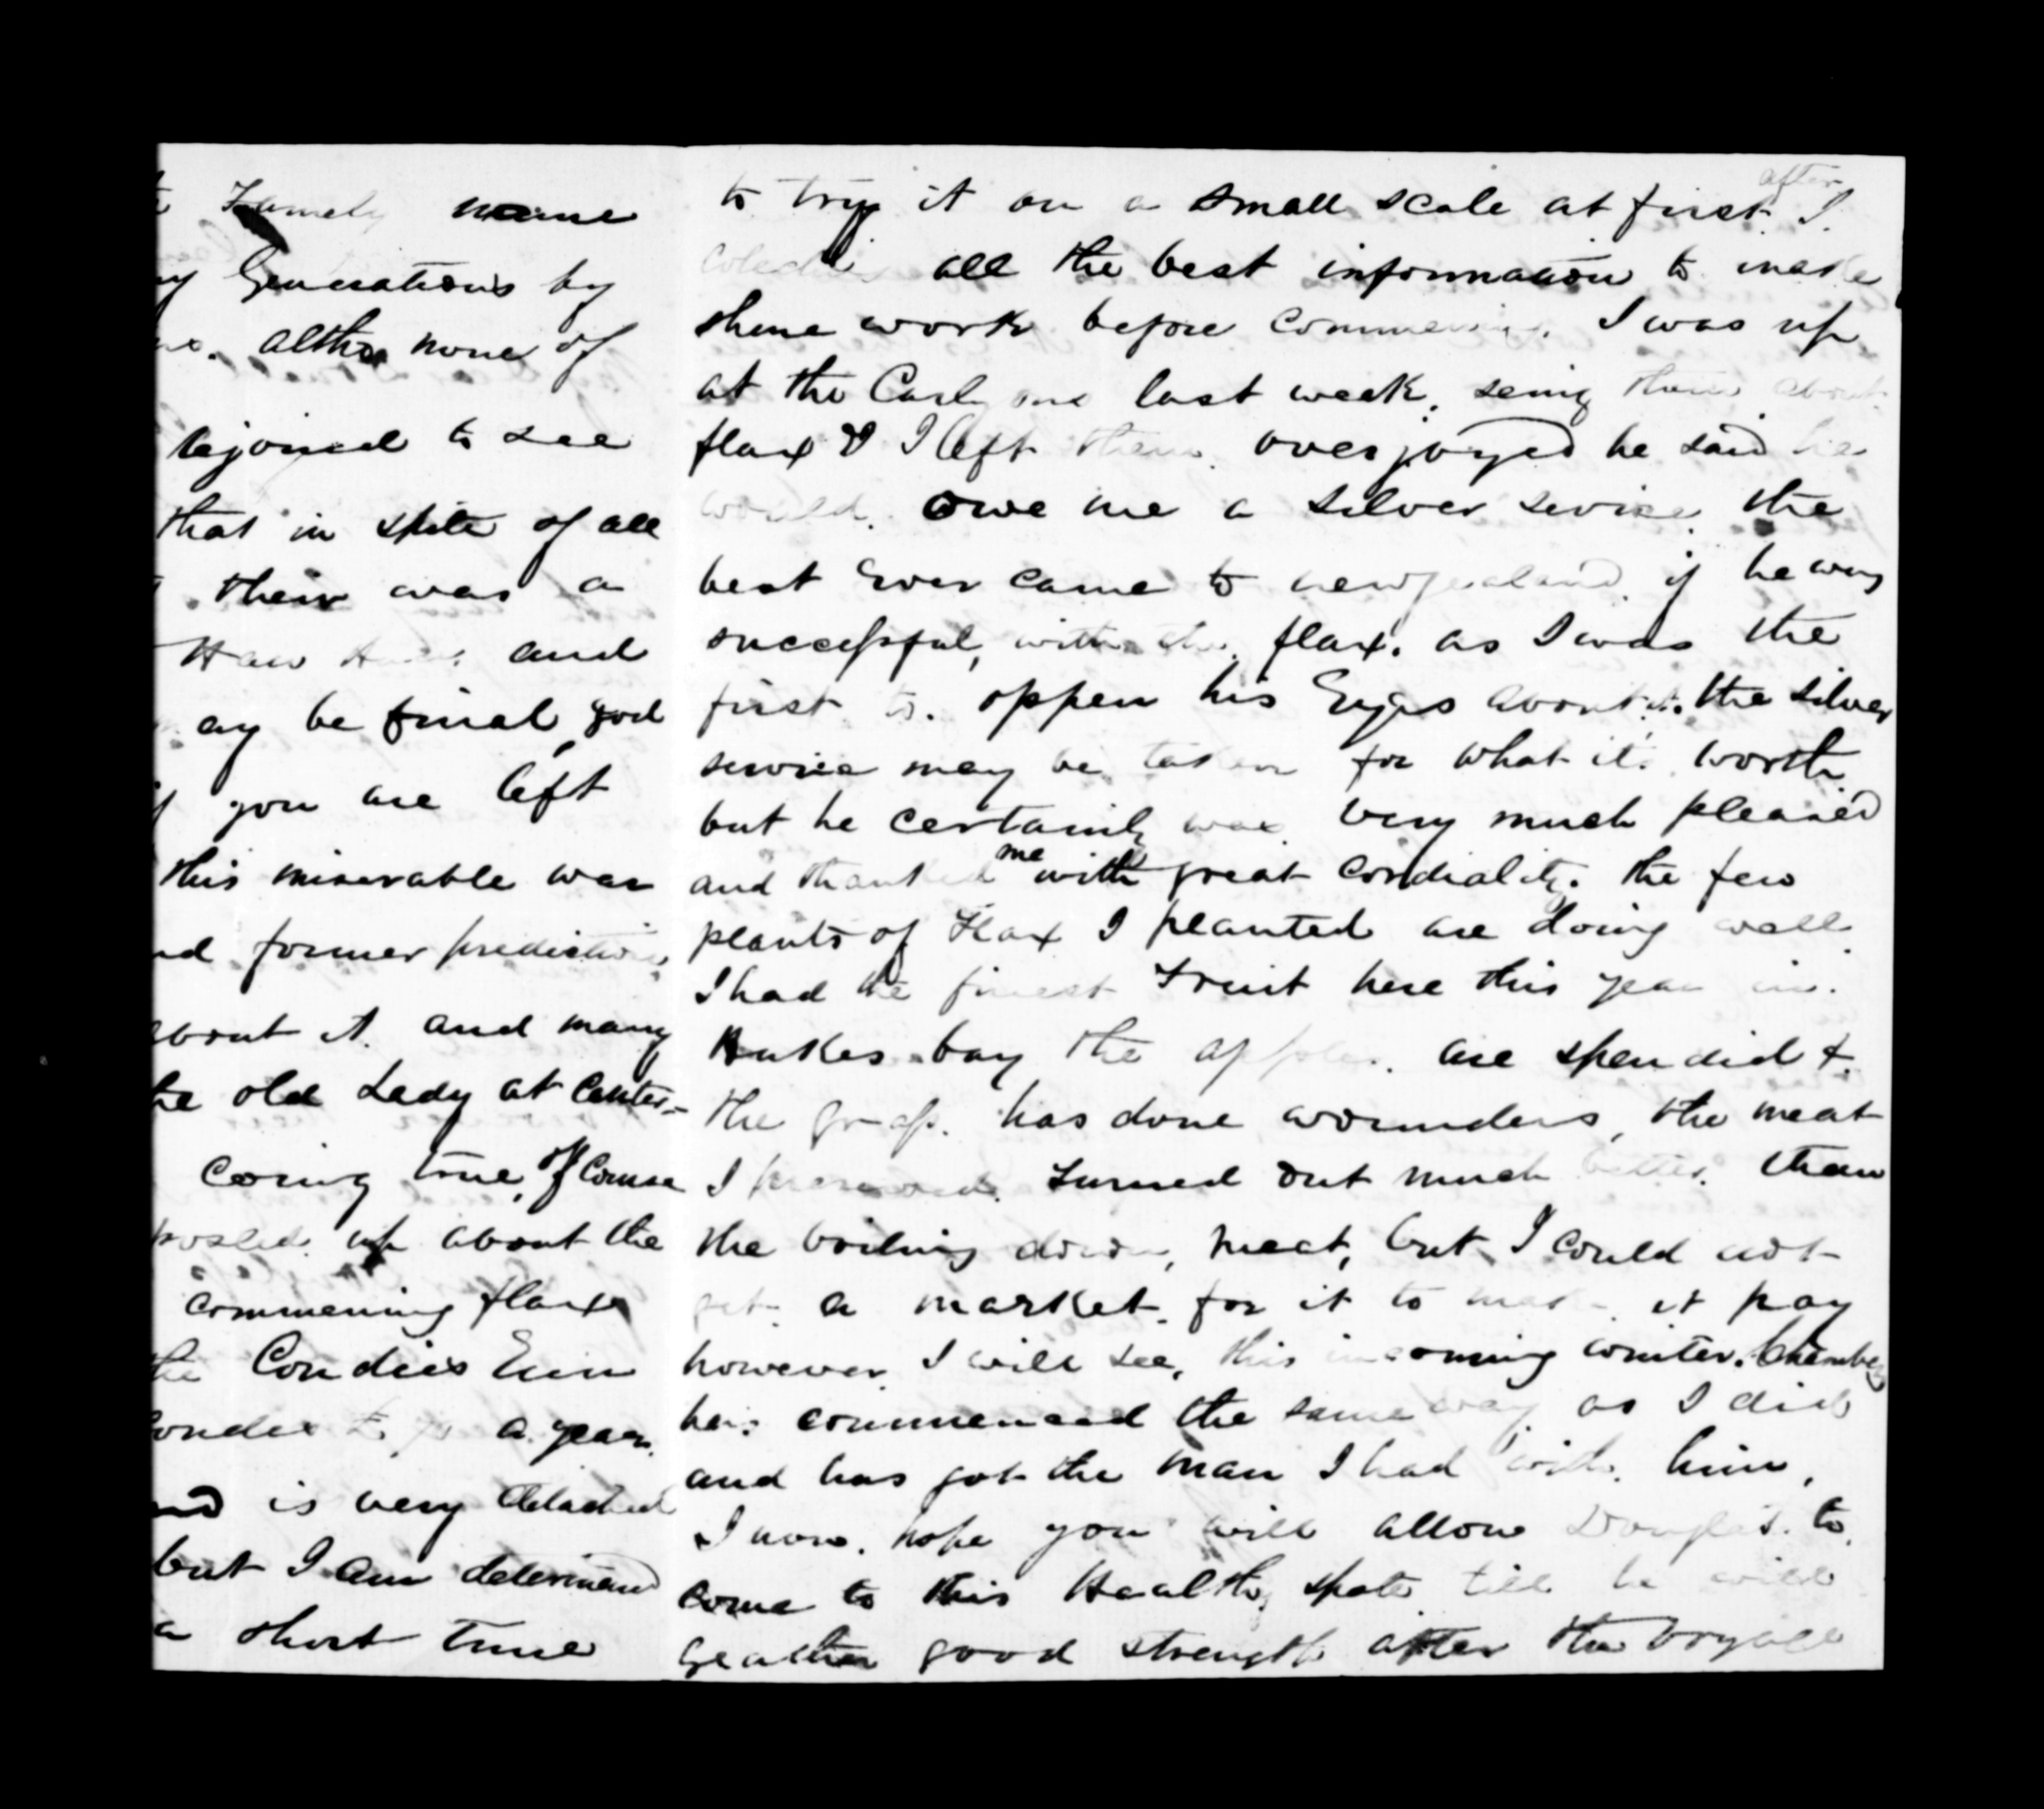 Famely name
Generations by
altho none of
rejoiced to see
that in spite of all
their was a
Haw and
ay be final, god
you are left
this miserable war
nd former predictions
about it. and many
he old Lady at Center-
coming true, of Course
up about the
commening flax
the Condies Enin
a year.
is very
but I am determined
a short time
to try it on a small scale at first. after I
all the best information to make
shure work before commencing. I was up
at the last week, seing them about
flax & I left them overjoyed he said he
would. owe me a silver service the
best Ever came to newzealand if he was
successful, with the flax. as I was the
first to. oppen his Eyes about it. the silver
service may be taken for what it. worth
but he certainly was very much pleased
and thanked me with great cordiality. the few
plants of Flax I planted are doing well.
I had the finest Fruit here this year in.
Hukes bay the apples. are spendid &
the grass. has done wounders, the meat
I preserved. turned out much better. than
the boiling down, meat, but I could not
get a market for it to make it pay
however I will see, this incoming winter.
has commenced the same way as I did
and has got the man I had with him,
I now. hope you will allow Douglas. to
come to this Healthy spote till he will
geather good strength after the voyage